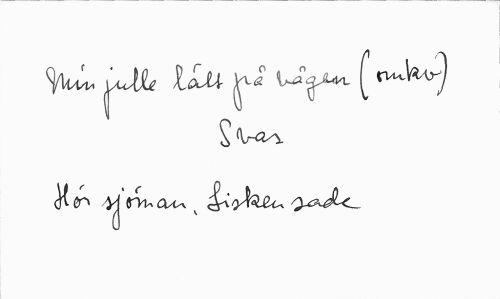 Min julle lätt på vågen (omkv)
Svas
Hör sjöman, fisken sade